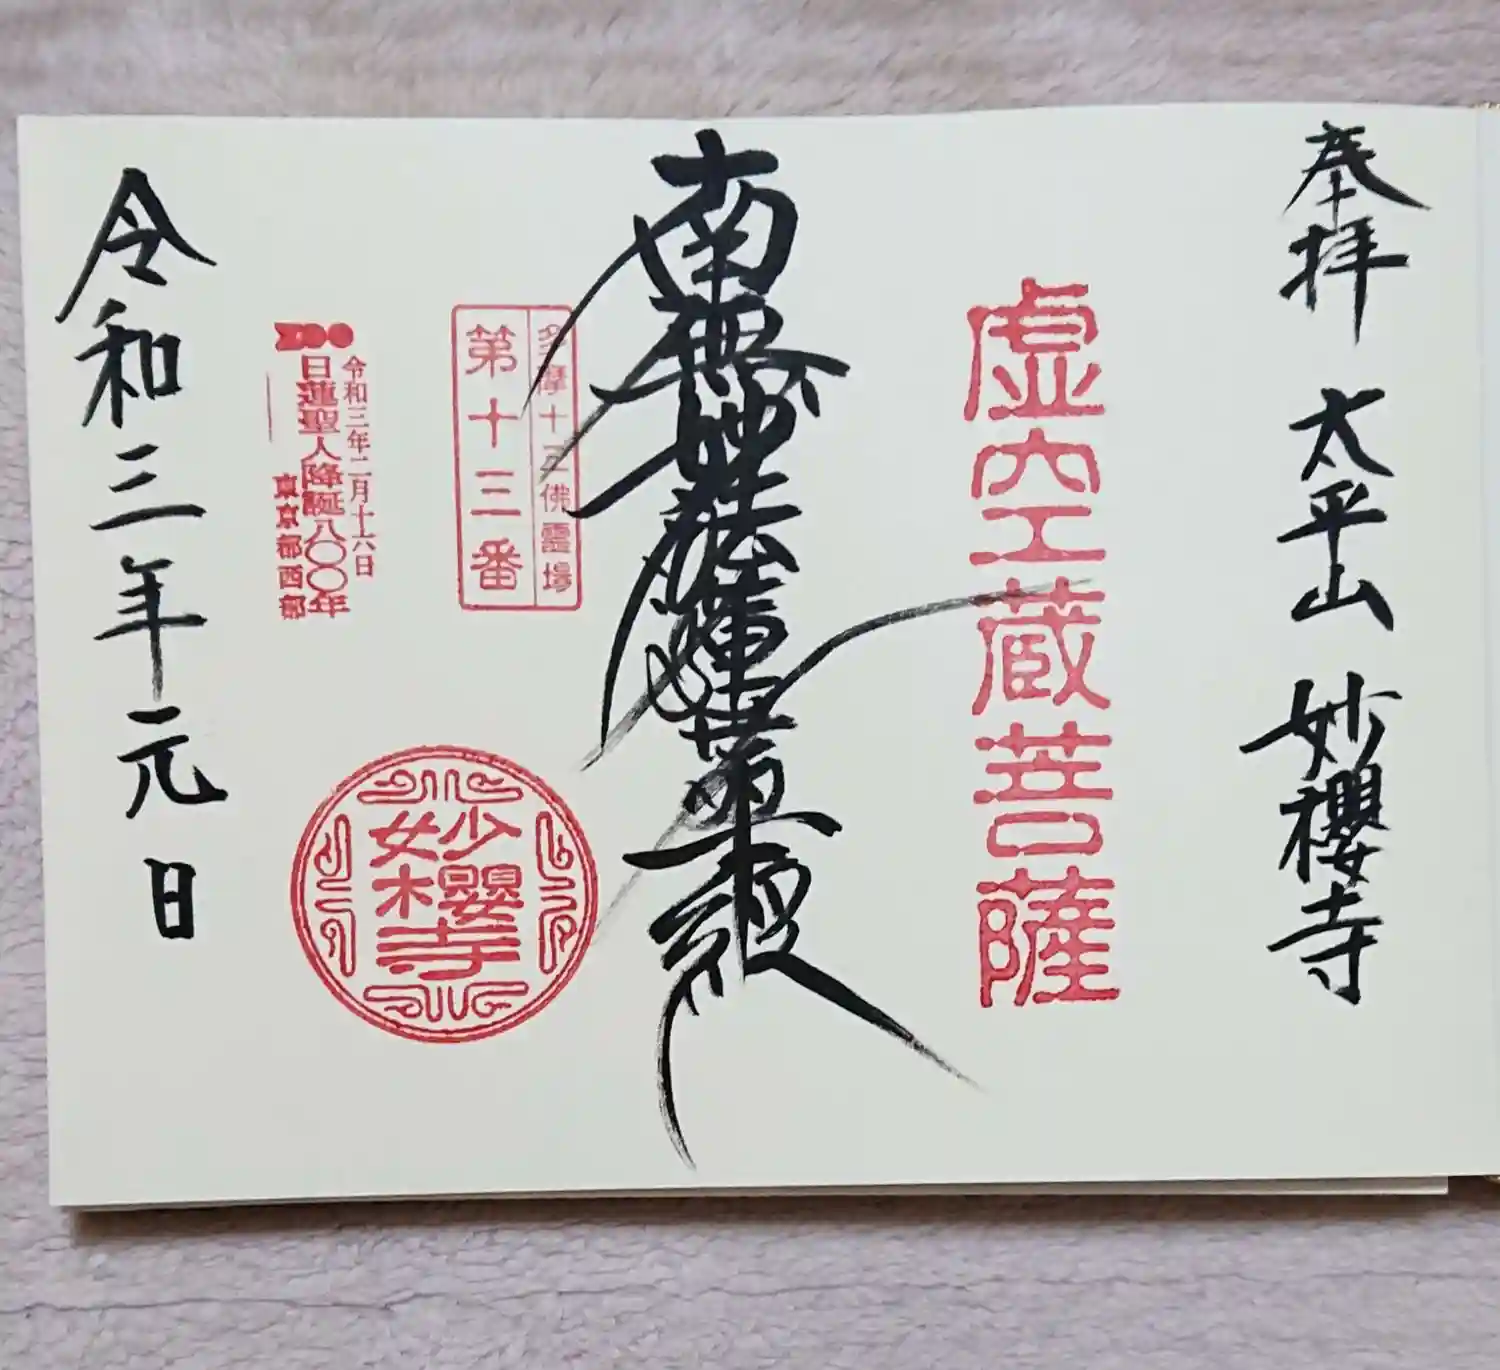 奉拝 太平山 妙櫻寺
虚空蔵菩薩
南無妙法蓮華経
多摩十三佛霊場
第十三番
令和三年二月十六日
日蓮聖人降誕八〇〇年
東京都西部
妙櫻寺
令和三年元日